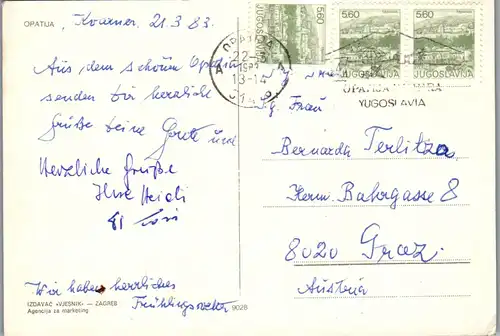 OPATIJA, Kvarner, 21.3.83.
Aus dem schönen Opatija
senden wir herzliche
Grüße deine Grete und
Herzliche Grüße
Ihre Heidi
Wir haben herrliches
Frühlingswetter
IZDAVAČ «VJESNIK» — ZAGREB
Agencija za marketing
9028
5,60
JUGOSLAVIJA
5,60
JUGOSLAVIJA
5,60
JUGOSLAVIJA
OPATIJA
22-3
1983
13-14
OPATIJA RIVIERA
YUGOSLAVIA
Sg. Frau
Bernarda Terlitza
Herm. Bahrgasse 8
8020 Graz
Austria